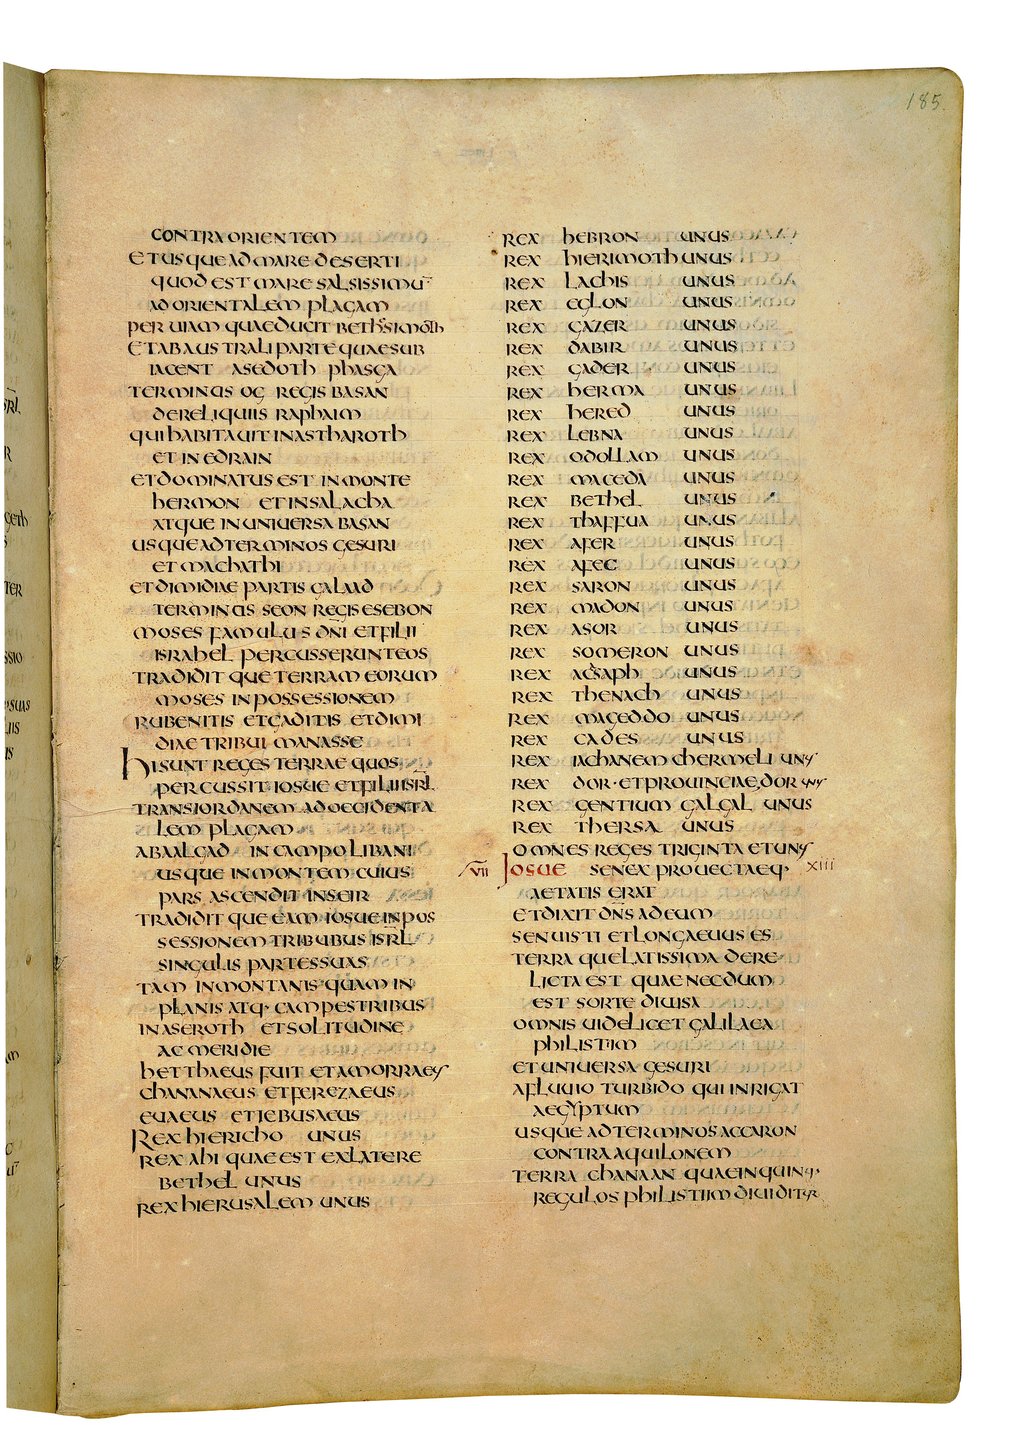 185.
CONTRA ORIENTEM
ET USQUE AD MARE DESERTI
QUOD EST MARE SALSISSIMŪ
AD ORIENTALEM PLAGAM
PER UIAM QUAE DUCIT BETHSIMOTH
ET AB AUSTRALI PARTE QUAE SUB
IACENT ASEDOTH PHASGA
TERMINUS OG REGIS BASAN
DE RELIQUIIS RAPHAIM
QUI HABITAUIT IN ASTHAROTH
ET IN EDRAIN
ET DOMINATUS EST IN MONTE
HERMON ET IN SALACHA
ATQUE IN UNIUERSA BASAN
USQUE AD TERMINOS GESURI
ET MACHATHI
ET DIMIDIAE PARTIS GALAAD
TERMINUS SEON REGIS ESEBON
MOSES FAMULUS DN̄I ET FILII
ISRAHEL PERCUSSERUNT EOS
TRADIDITQUE TERRAM EORUM
MOSES IN POSSESSIONEM
RUBENITIS ET GADITIS ET DIMI
DIAE TRIBUI MANASSE
HI SUNT REGES TERRAE QUOS
PERCUSSIT IOSUE ET FILII ISRL̄
TRANS IORDANEM AD OCCIDENTA
LEM PLAGAM
A BAALGAD IN CAMPO LIBANI
USQUE IN MONTEM CUIUS
PARS ASCENDIT IN SEIR
TRADIDITQUE EAM IOSUE IN POS
SESSIONEM TRIBUBUS ISRL̄
SINGULIS PARTES SUAS
TAM IN MONTANIS QUAM IN
PLANIS ATQ· CAMPESTRIBUS
IN ASEROTH ET SOLITUDINE
AC MERIDIE
HETTHAEUS FUIT ET AMORRAEUS
CHANANAEUS ET FEREZAEUS
EUAEUS ET IEBUSAEUS
REX HIERICHO UNUS
REX AHI QUAE EST EX LATERE
BETHEL UNUS
REX HIERUSALEM UNUS
REX HEBRON UNUS
REX HIERIMOTH UNUS
REX LACHIS UNUS
REX EGLON UNUS
REX GAZER UNUS
REX DABIR UNUS
REX GADER UNUS
REX HERMA UNUS
REX HERED UNUS
REX LEBNA UNUS
REX ODOLLAM UNUS
REX MACEDA UNUS
REX BETHEL UNUS
REX THAFFUA UNUS
REX AFER UNUS
REX AFEC UNUS
REX SARON UNUS
REX MADON UNUS
REX ASOR UNUS
REX SOMERON UNUS
REX ACSAPH UNUS
REX THENACH UNUS
REX MAGEDDO UNUS
REX CADES UNUS
REX IACHANEM CHERMELI UNUS
REX DOR · ET PROUINCIAE DOR UNUS
REX GENTIUM GALGAL UNUS
REX THERSA UNUS
OMNES REGES TRIGINTA ET UNUS
VII IOSUE SENEX PROUECTAEQ· XIII
AETATIS ERAT
ET DIXIT DN̄S AD EUM
SENUISTI ET LONGAEUUS ES
TERRAQUE LATISSIMA DERE
LICTA EST QUAE NECDUM
EST SORTE DIUISA
OMNIS UIDELICET GALILAEA
PHILISTIIM
ET UNIUERSA GESURI
A FLUUIO TURBIDO QUI INRIGAT
AEGYPTUM
USQUE AD TERMINOS ACCARON
CONTRA AQUILONEM
TERRA CHANAAN QUAE IN QUINQ·
REGULOS PHILISTIIM DIUIDITUR